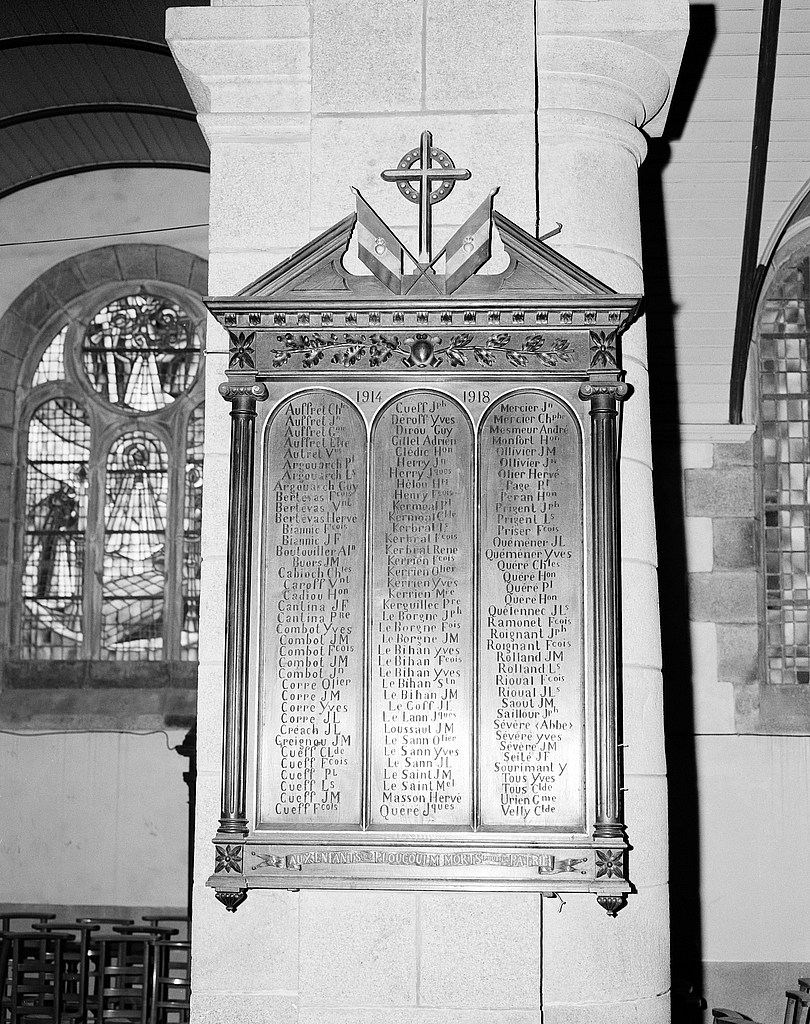 1914 1918
Auffret Chles
Auffret Jn
Auffret
Auffret
Autret Vnt
Argouarch Pl
Argouarch Ls
Argouarch Guy
Bertévas Fcois
Bertévas Vnt
Bertévas Hervé
Biannic Fcois
Biannic JF
Boutouiller Aln
Buors JM
Cabioch Chles
Caroff Vnt
Cadiou Hon
Cantina JF
Cantina Pre
Combot Yves
Combot JM
Combot Fcois
Combot JM
Combot Jn
Corre Olier
Corre JM
Corre Yves
Corre JL
Créach JL
Greignou JM
Cueff Clde
Cueff Fcois
Cueff Pl
Cueff Ls
Cueff JM
Cueff Fcois
Cueff Jph
Déroff Yves
Dirou Guy
Gillet Adrien
Clédic Hon
Herry Jn
Herry Jques
Hélou Hri
Henry Fcois
Kermoal Pl
Kermoal Clde
Kerbrat
Kerbrat Fcois
Kerbrat René
Kerrien Fcois
Kerrien Olier
Kerrien Yves
Kerrien Mce
Kerguillec Pre
Le Borgne Jph
Le Borgne Fcois
Le Borgne JM
Le Bihan Yves
Le Bihan Fcois
Le Bihan Yves
Le Bihan Stn
Le Bihan JM
Le Goff JL
Le Lann Jques
Loussaut JM
Le Sann Olier
Le Sann Yves
Le Sann JL
Le Saint JM
Le Saint Mel
Masson Hervé
Quéré Jques
Mercier Jn
Mercier Chphe
Mesmeur André
Monfort Hon
Ollivier JM
Ollivier Jn
Olier Hervé
Page Pl
Péran Hon
Prigent Jph
Prigent Ls
Priser Fcois
Quéméner JL
Quéméner Yves
Quéré Chles
Quéré Hon
Quéré Pl
Quéré Hon
Quélennec JLs
Ramonet Fcois
Roignant Jph
Roignant Fcois
Rolland JM
Rolland Ls
Rioual Fcois
Rioual JLs
Saout JM
Saillour Jph
Sévère (Abbé)
Sévère Yves
Sévère JM
Seité JF
Sourimant Y
Tous Yves
Tous Clde
Urien Gme
Velly Clde
AUX ENFANTS DE PLOUGOULM MORTS POUR LA PATRIE